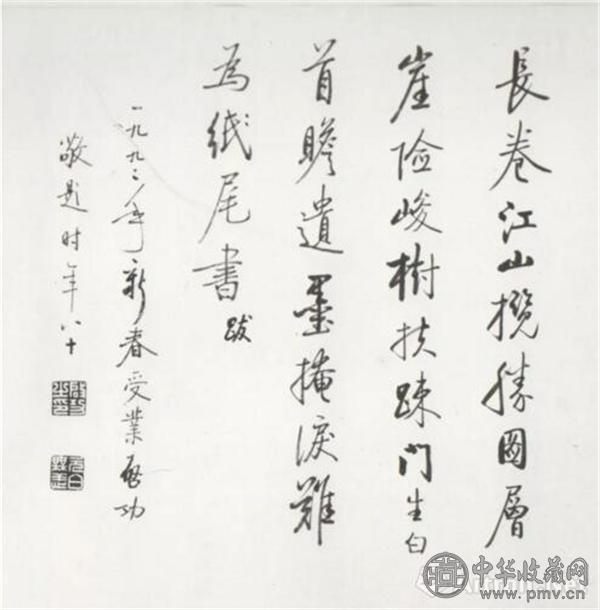 長卷江山攬勝圖層
崖險峻樹扶疎門生白
首瞻遺墨掩淚難
為紙尾書跋
一九九二年新春受業啓功
敬題時年八十
中华收藏网
www.pmv.cn